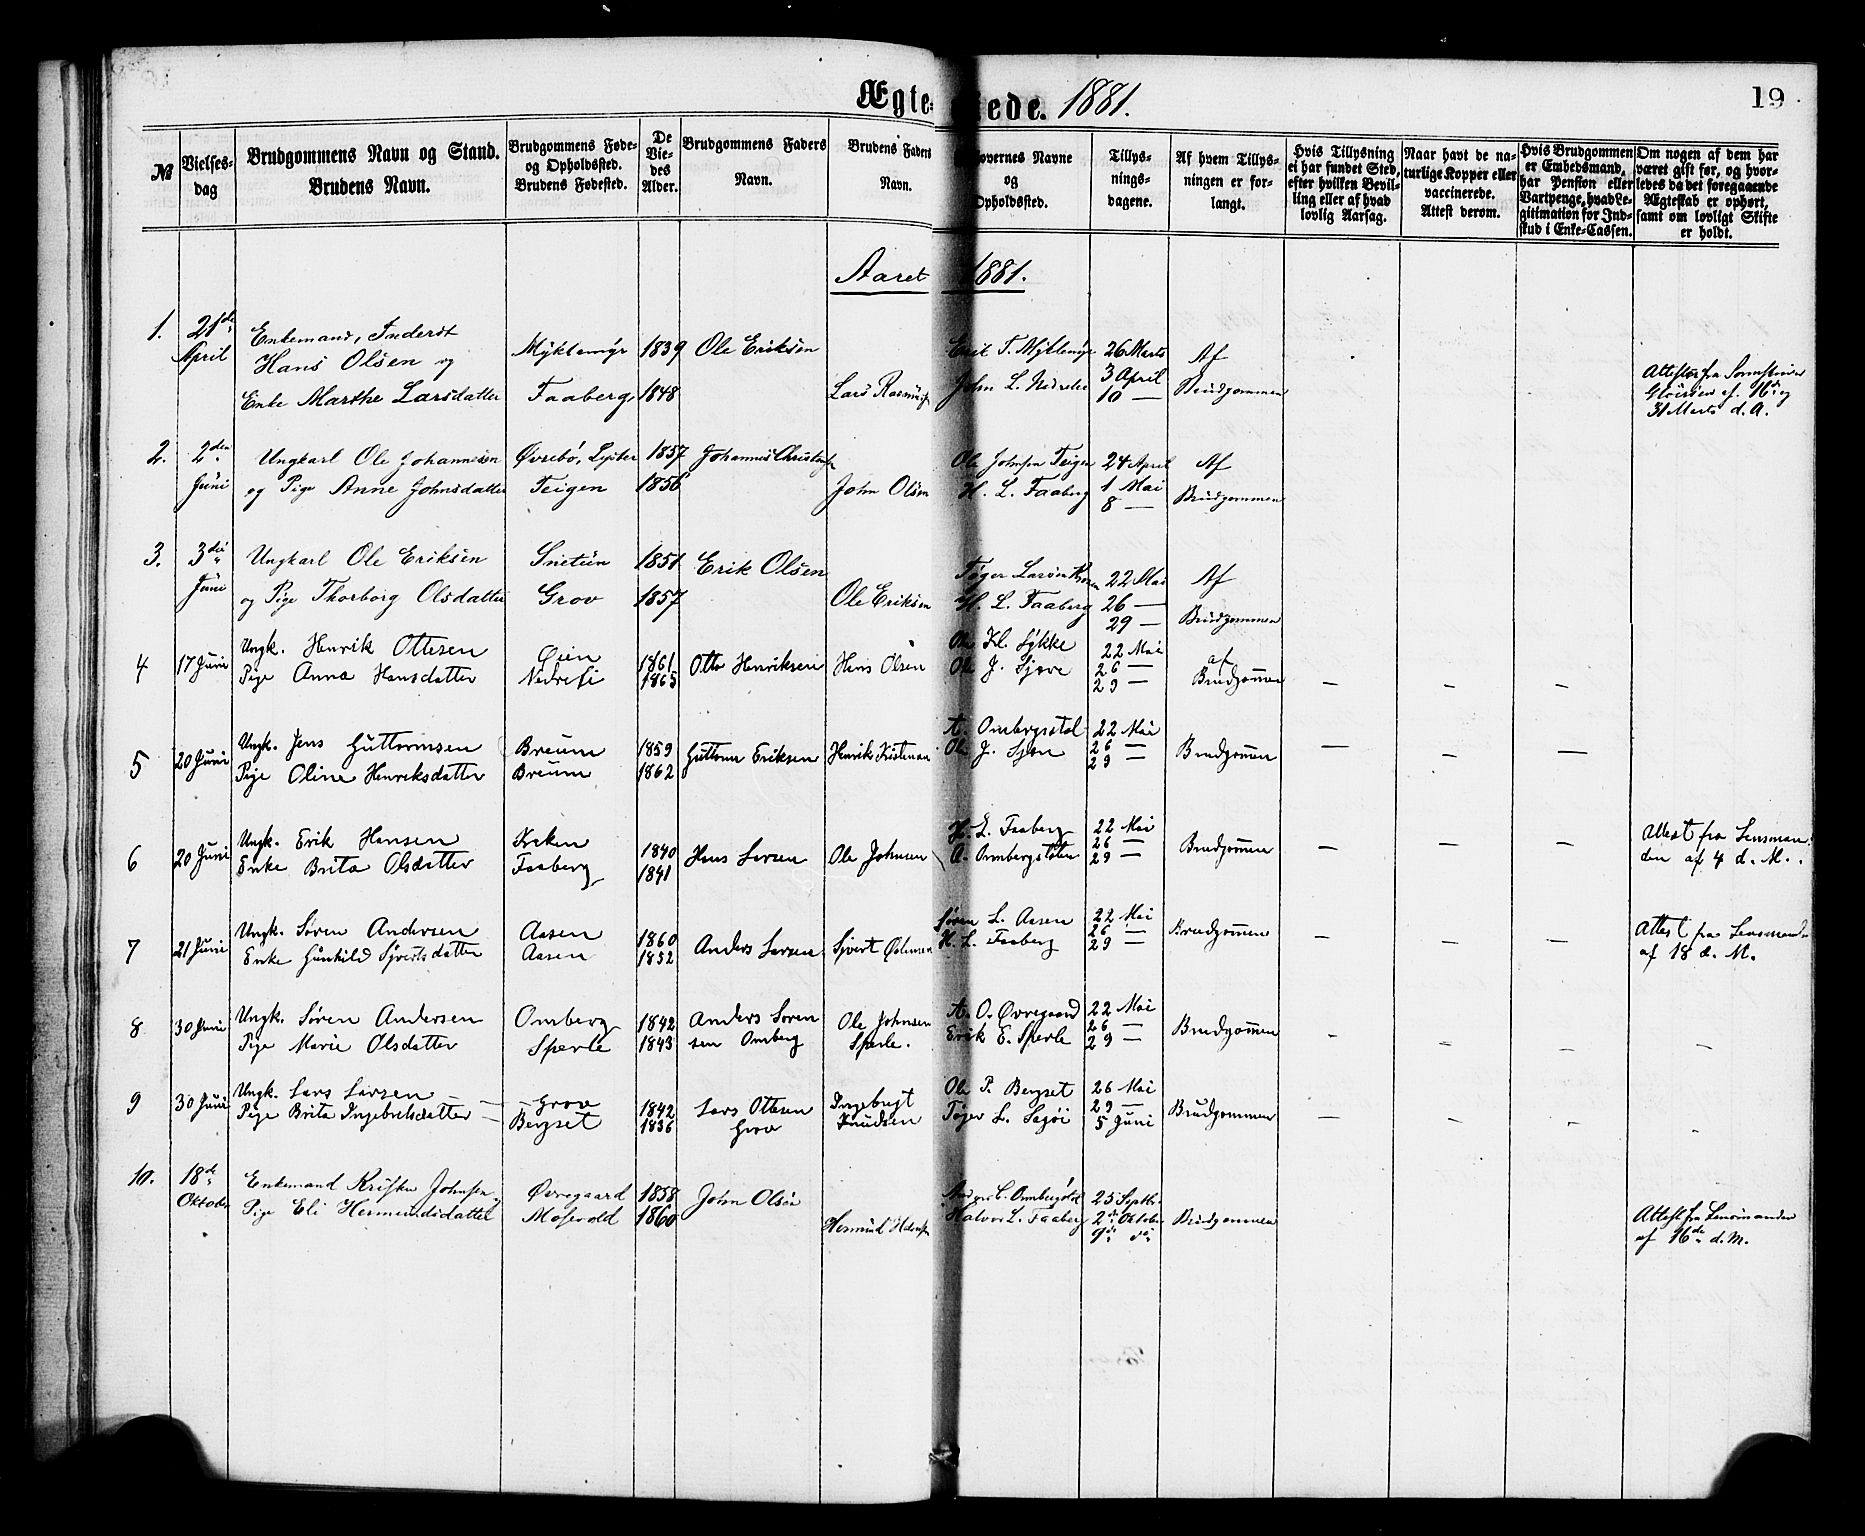 Ægte- ede. 1881.
19
№
Vielses-
dag
Brudgommens Navn og Stand.
Brudens Navn.
Brudgommens Føde-
og Opholdssted.
Brudens Fødested.
De
Vie-
des
Alder.
Brudgommens Faders
Navn.
Brudens Faders
Navn.
overnes Navne
og
Opholdssted.
Tillys-
nings-
dagene.
Af hvem Tillys-
ningen er for-
langt.
Hvis Tillysning
ei har fundet Sted,
efter hvilken Bevil-
ling eller af hvad
lovlig Aarsag.
Naar havt de na-
turlige Kopper eller
vaccinerede.
Attest derom.
Hvis Brudgommen
er Embedsmand,
har Pension eller
Vartpenge, hvad Le-
gitimation for Ind-
skud i Enke-Cassen.
Om nogen af dem har
været gift før, og hvor-
ledes da det foregaaende
Ægteskab er ophørt,
samt om lovligt Skifte
er holdt.
Aaret 1881.
1. 21de Enkemand, Inderst
April Hans Olsen og Myklemyr 1839 Ole Eriksen Erik T. Myklemyr 26 Marts Af
Enke Marthe Larsdatter Faaberg 1848 Lars Rasmus John L. 3 April Brudgommen
10 —
Attester fra
af. 16de og
31 Marts d. A.
2. 2den Ungkarl Ole Johannesen Øvrebø, Lyster 1857 Johannes Ole Johnsen Teigen 24 April Af
Juni og Pige Anne Johnsdatter Teigen 1856 John Olsen H. L. Faaberg 1 Mai Brudgommen
8 —
3. 3die Ungkarl Ole Eriksen Snetun 1851 Erik Olsen Tøger 22 Mai Af
Juni og Pige Thorborg Olsdatter Grov 1857 Ole Eriksen H. L. Faaberg 26 — Brudgommen
29 —
4 17 Juni Ungk. Henrik Ottesen Øien 1861 Otto Henriksen Hans Olsen Ole Kl. Lykke 22 Mai af
Pige Anna Hansdatter 1865 Ole J. 26 — Brudgommen — — —
29 —
5 20 Juni Ungk. Jens Guttormsen Breum 1859 Guttorm Eriksen Henrik A. Ombergstøl 22 Mai Brudgommen — — —
Pige Oline Henriksdatter Breum 1862 Ole J. 26 —
29 —
6 20 Juni Ungk. Erik Hansen Kreken 1840 Hans Larsen Ole Johnsen H. L. Faaberg 22 Mai Brudgommen — — — Attest fra Lensman
Enke Brita Olsdatter Faaberg 1841 A. Ombergstølen 26 — den af 4 d. M.
29 —
7 21 Juni Ungk. Søren Andersen Aasen 1860 Anders Larsen Sjvert Søren L. Aasen 22 Mai Brudgommen — — — Attest fra Lensmanden
Enke Gunhild Sjvertsdatter Aasen 1852 H. L. Faaberg 26 — af 18 d. M.
29 —
8 30 Juni Ungk. Søren Andersen Omberg 1842 Anders Soren Ole Johnsen A. O. Øvregaard 22 Mai Brudgommen - - - -
Pige Marie Olsdatter Sperle 1843 sen Omberg Sperle. Erik E. Sperle 26 —
29 —
9 30 Juni Ungk. Lars Larsen — Grov 1842 Lars Ottesen Ingebrigt Ole P. Bergset 26 Mai Brudgommen — - - -
Pige Brita Ingebretsdatter — Bergset 1836 Grov Knudsen Tøger L. 29 —
5 Juni
10. 18de Enkemand Kristen Johnsen Øvregaard 1858 John Olsen 25 Septbr.
Oktober Pige Eli Hermundsdatter Mosevold 1860 Hermund Halvor L. Faaberg 2den Oktober Brudgommen Attest fra Lensmanden
9de do af 16de d. M.